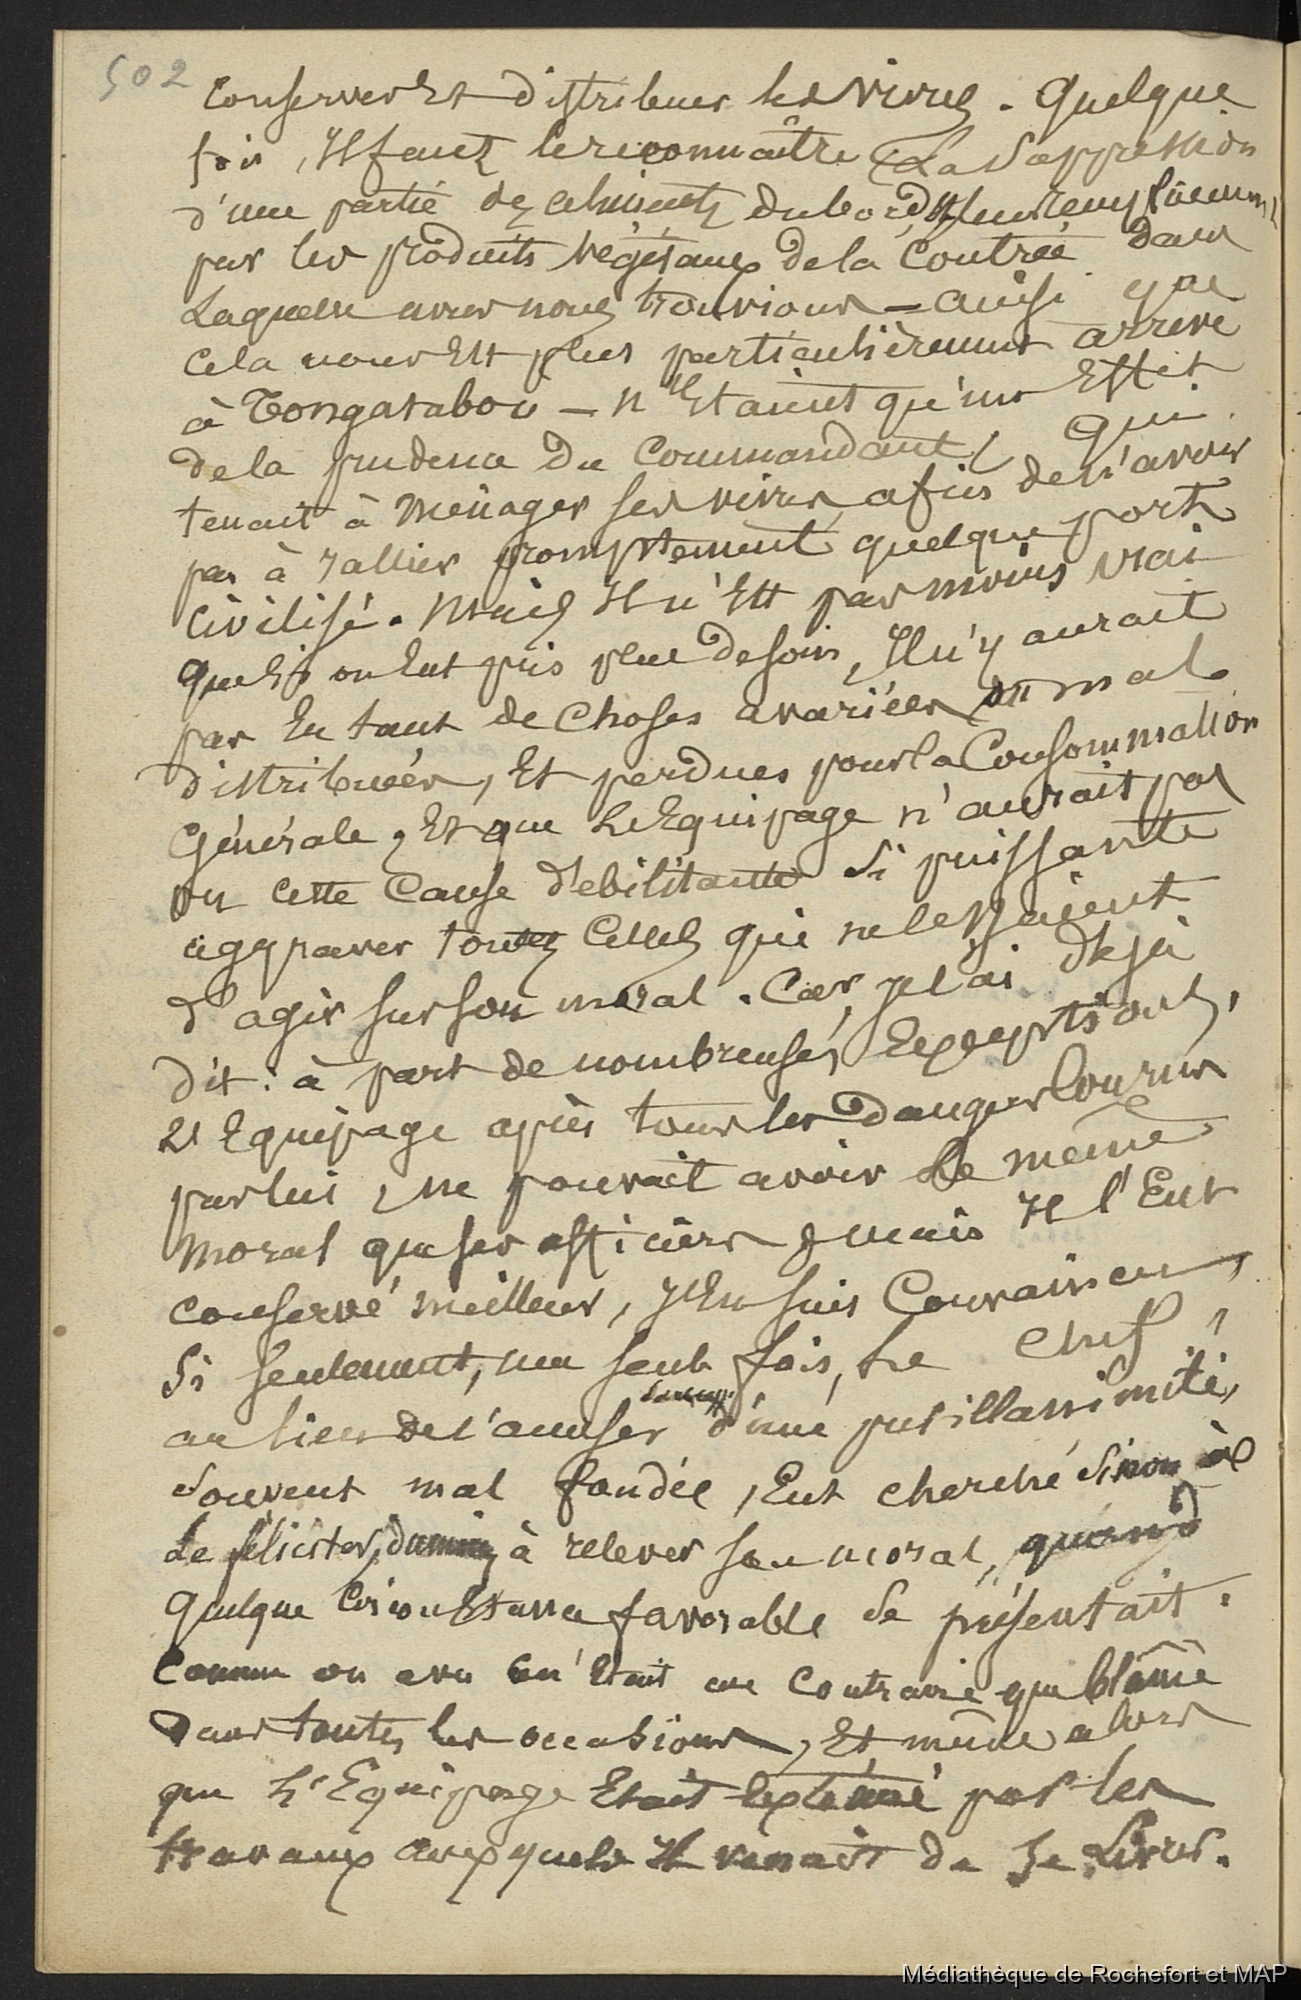 502
Conserver Et distribuer les vivres. Quelque
fois, Il faut le reconnaître, La Suppression
d'une partie des aliments du bord, Et leur remplacement
par les produits végétaux de la Contrée dans
Laquelle nous nous trouvions — ainsi que
Cela nous Est plus particulièrement arrivé
à Tongatabou — n'Etaient qu'un Effet
de la prudence Du Commandant, qui
tenait à Ménager ses vivres, afin de n'avoir
pas à rallier promptement quelque port
Civilisé. Mais Il n'Est pas moins vrai
que si on Eut pris plus de soin, Il n'y aurait
pas Eu tant de Choses avariées ou mal
distribuées, Et perdues pour la Consommation
Générale, Et que L'Equipage n'aurait pas
vu cette Cause débilitante Si puissante
aggraver toutes Celles qui ne cessaient
d'agir sur son moral. Car, je l'ai Déjà
Dit : à part de nombreuses Exceptions,
L'Equipage après tous les Dangers Courus
par lui, ne pouvait avoir Le même
Moral que ses officiers, mais Il l'Eut
conservé meilleur, j'En suis Convaincu,
Si seulement, une seule fois, Le Chef,
au lieu de l'accuser d'une pusillanimité,
Souvent mal fondée, Eut cherché Sinon à
Le féliciter, du moins à relever son moral, quand
Quelque Circonstance favorable Se présentait.
Comme on a vu Ce n'Etait au Contraire que blâme
Dans toutes les occasions, Et même alors
que L'Equipage Etait Exténué par les
travaux auxquels Il venait de Se Livrer.
Médiathèque de Rochefort et MAP